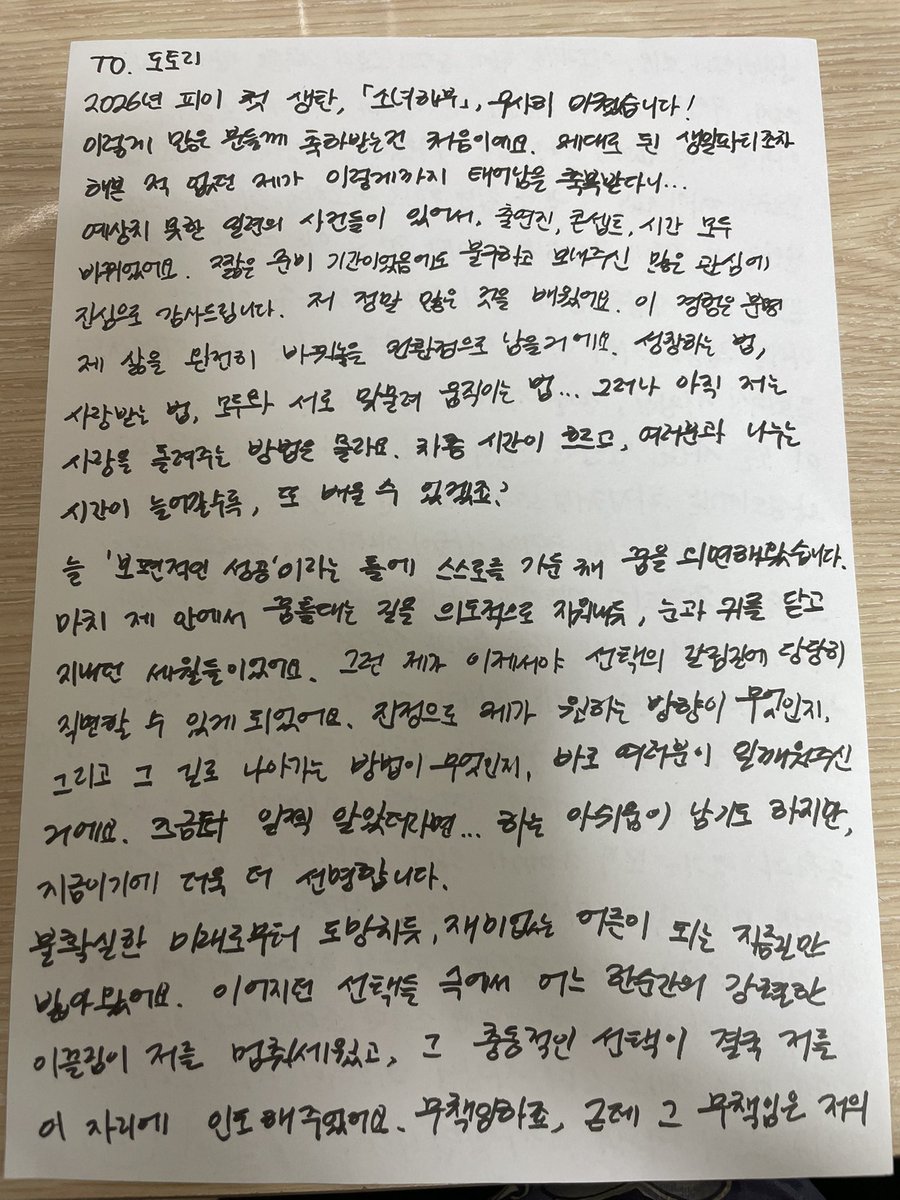 TO. 도토리
2026년 피이 첫 생탄, 「소녀해무」, 무사히 마쳤습니다!
이렇게 많은 분들께 축하받는건 처음이에요. 제대로 된 생일파티조차
해본 적 없던 제가 이렇게까지 태어남을 축복받다니...
예상치 못한 일련의 사건들이 있어서, 출연진, 콘셉트, 시간 모두
바뀌었어요. 짧은 준비 기간이었음에도 불구하고 보내주신 많은 관심에
진심으로 감사드립니다. 저 정말 많은 것을 배웠어요. 이 경험은 분명
제 삶을 완전히 바꿔놓을 전환점으로 남을거에요. 성장하는 법,
사랑받는 법, 모두와 서로 맞물려 움직이는 법... 그러나 아직 저는
사랑을 돌려주는 방법은 몰라요. 차츰 시간이 흐르고, 여러분과 나누는
시간이 늘어갈수록, 또 배울 수 있겠죠?
늘 '보편적인 성공'이라는 틀에 스스로를 가둔 채 꿈을 외면해왔습니다.
마치 제 안에서 꿈틀대는 길을 의도적으로 지워내듯, 눈과 귀를 닫고
지내던 세월들이었어요. 그런 제가 이제서야 선택의 갈림길에 당당히
직면할 수 있게 되었어요. 진정으로 제가 원하는 방향이 무엇인지,
그리고 그 길로 나아가는 방법이 무엇인지, 바로 여러분이 일깨워주신
거에요. 조금만 일찍 알았더라면... 하는 아쉬움이 남기도 하지만,
지금이기에 더욱 더 선명합니다.
불확실한 미래로부터 도망치듯, 재미없는 어른이 되는 지름길만
밟아왔어요. 이어지던 선택들 속에서 어느 한순간의 강렬한
이끌림이 저를 멈춰세웠고, 그 충동적인 선택이 결국 저를
이 자리에 인도해주었어요. 무책임하죠, 근데 그 무책임은 저의